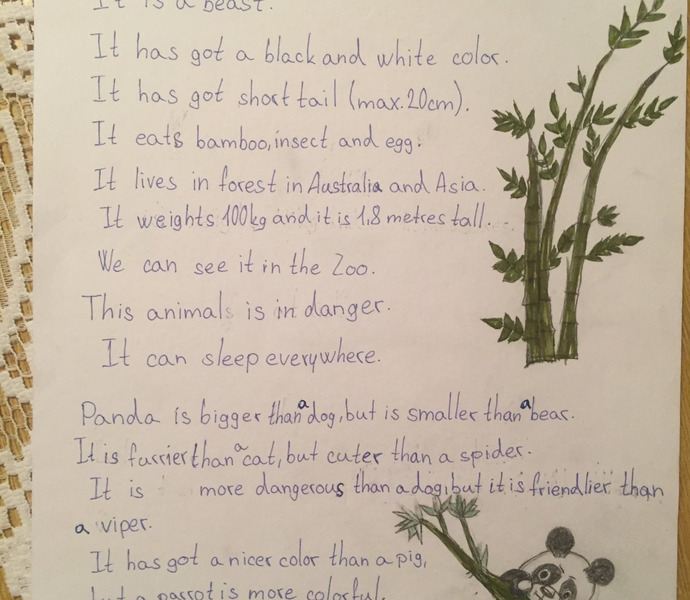 It is a beast.
It has got a black and white color.
It has got short tail (max.20cm).
It eats bamboo, insect and egg.
It lives in forest in Australia and Asia.
It weights 100kg and it is 1,8 metres tall.
We can see it in the Zoo.
This animal is in danger.
It can sleep everywhere.
Panda is bigger than a dog, but is smaller than a bear.
It is furrier than a cat, but cuter than a spider.
It is more dangerous than a dog, but it is friendlier than
a viper.
It has got a nicer color than a pig,
but a parrot is more colorful.